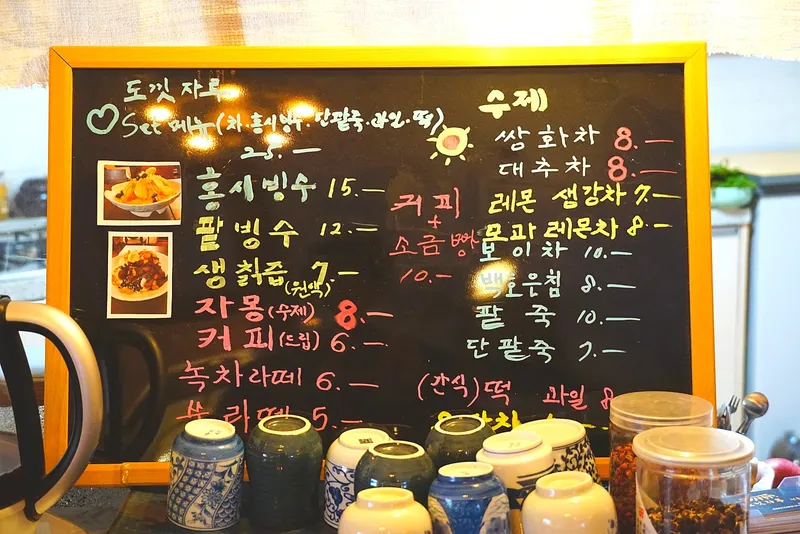 도낏 자루
Set 메뉴 (차.홍시빙수.단팥죽.과일.떡)
25.—
홍시빙수 15.—
팥빙수 12.—
생칡즙(원액) 7.—
자몽(수제) 8.—
커피(드립) 6.—
녹차라떼 6.—
라떼 5.—
커피
+
소금빵
10.—
수제
쌍화차 8.—
대추차 8.—
레몬 생강차 7.—
모과레몬차 8.—
보이차 10.—
백호은침 8.—
팥죽 10.—
단팥죽 7.—
(간식) 떡 과일 8